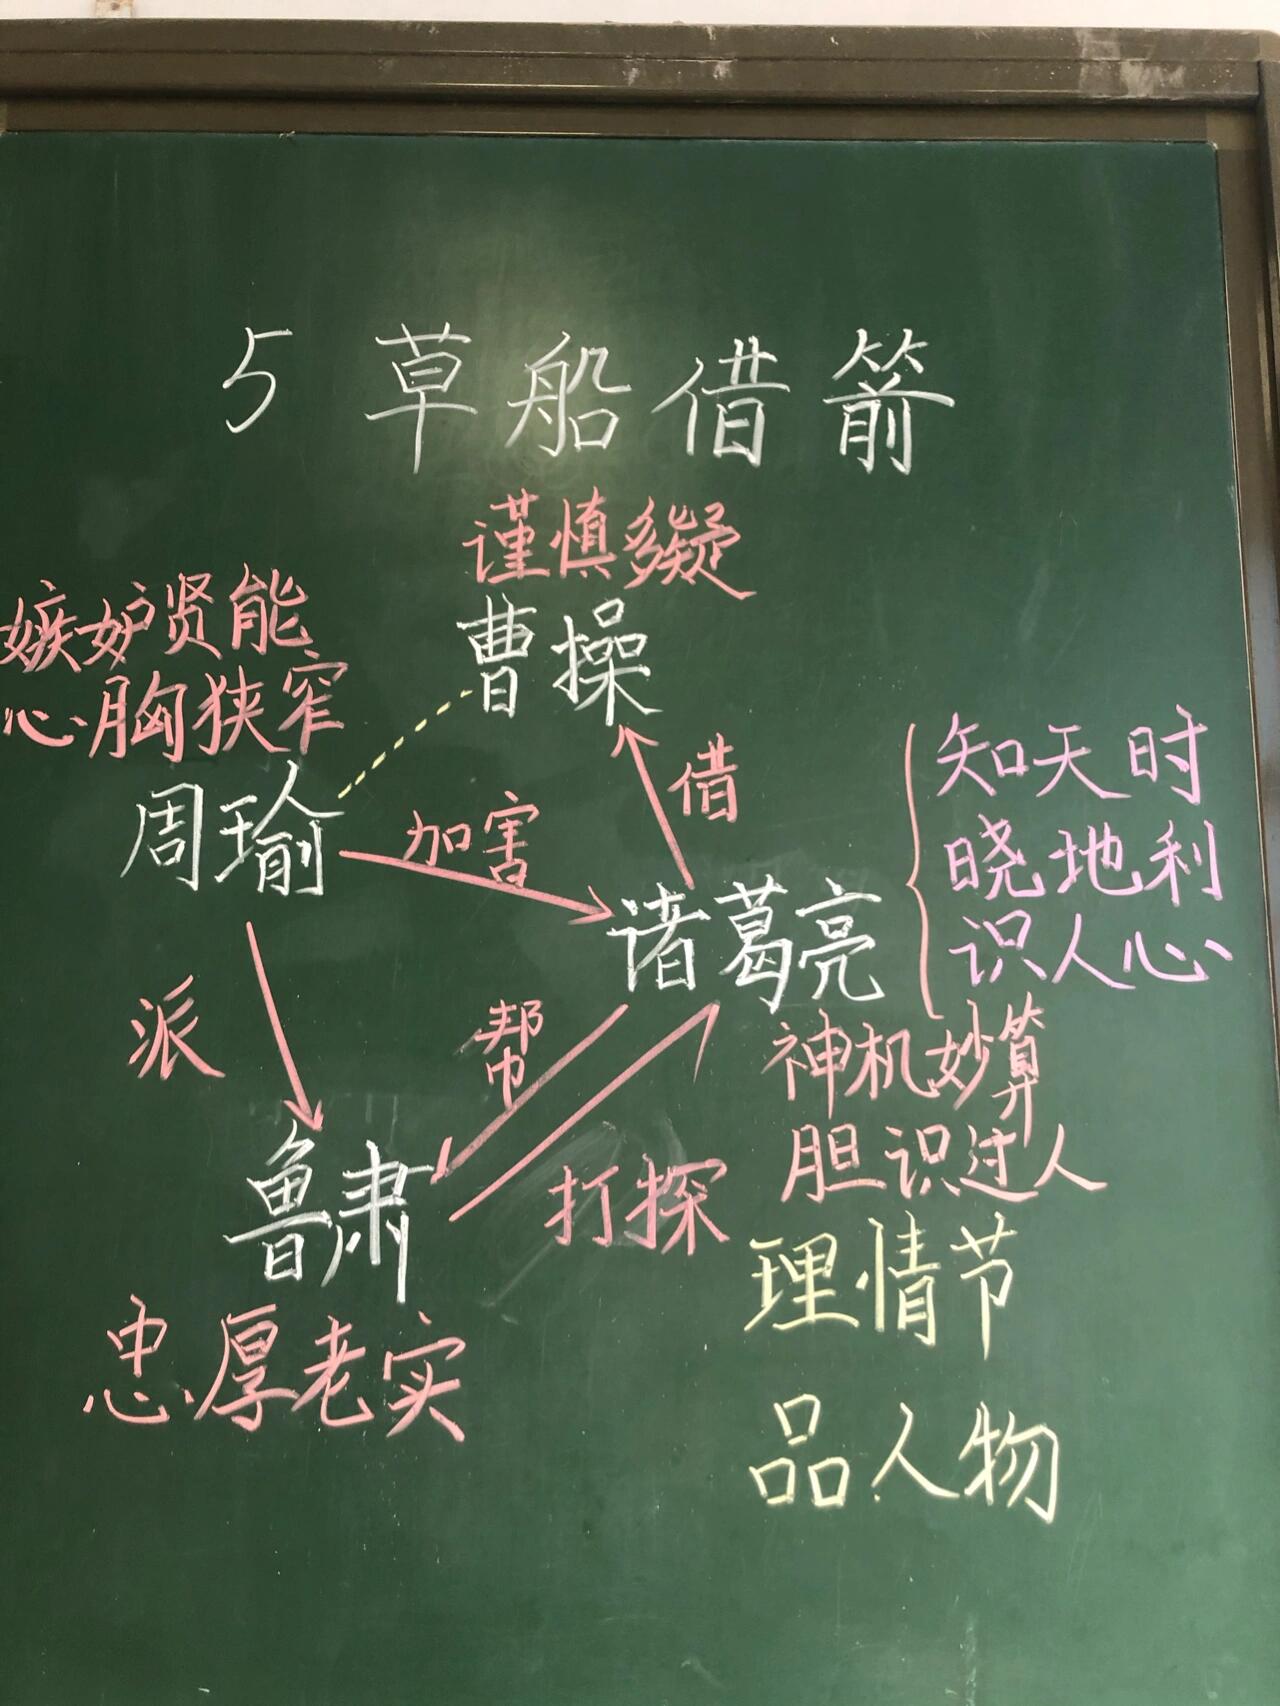 5 草船借箭
谨慎多疑
曹操
嫉妒贤能
心胸狭窄
周瑜
加害
借
诸葛亮
知天时
晓地利
识人心
神机妙算
胆识过人
派
帮
打探
鲁肃
忠厚老实
理情节
品人物